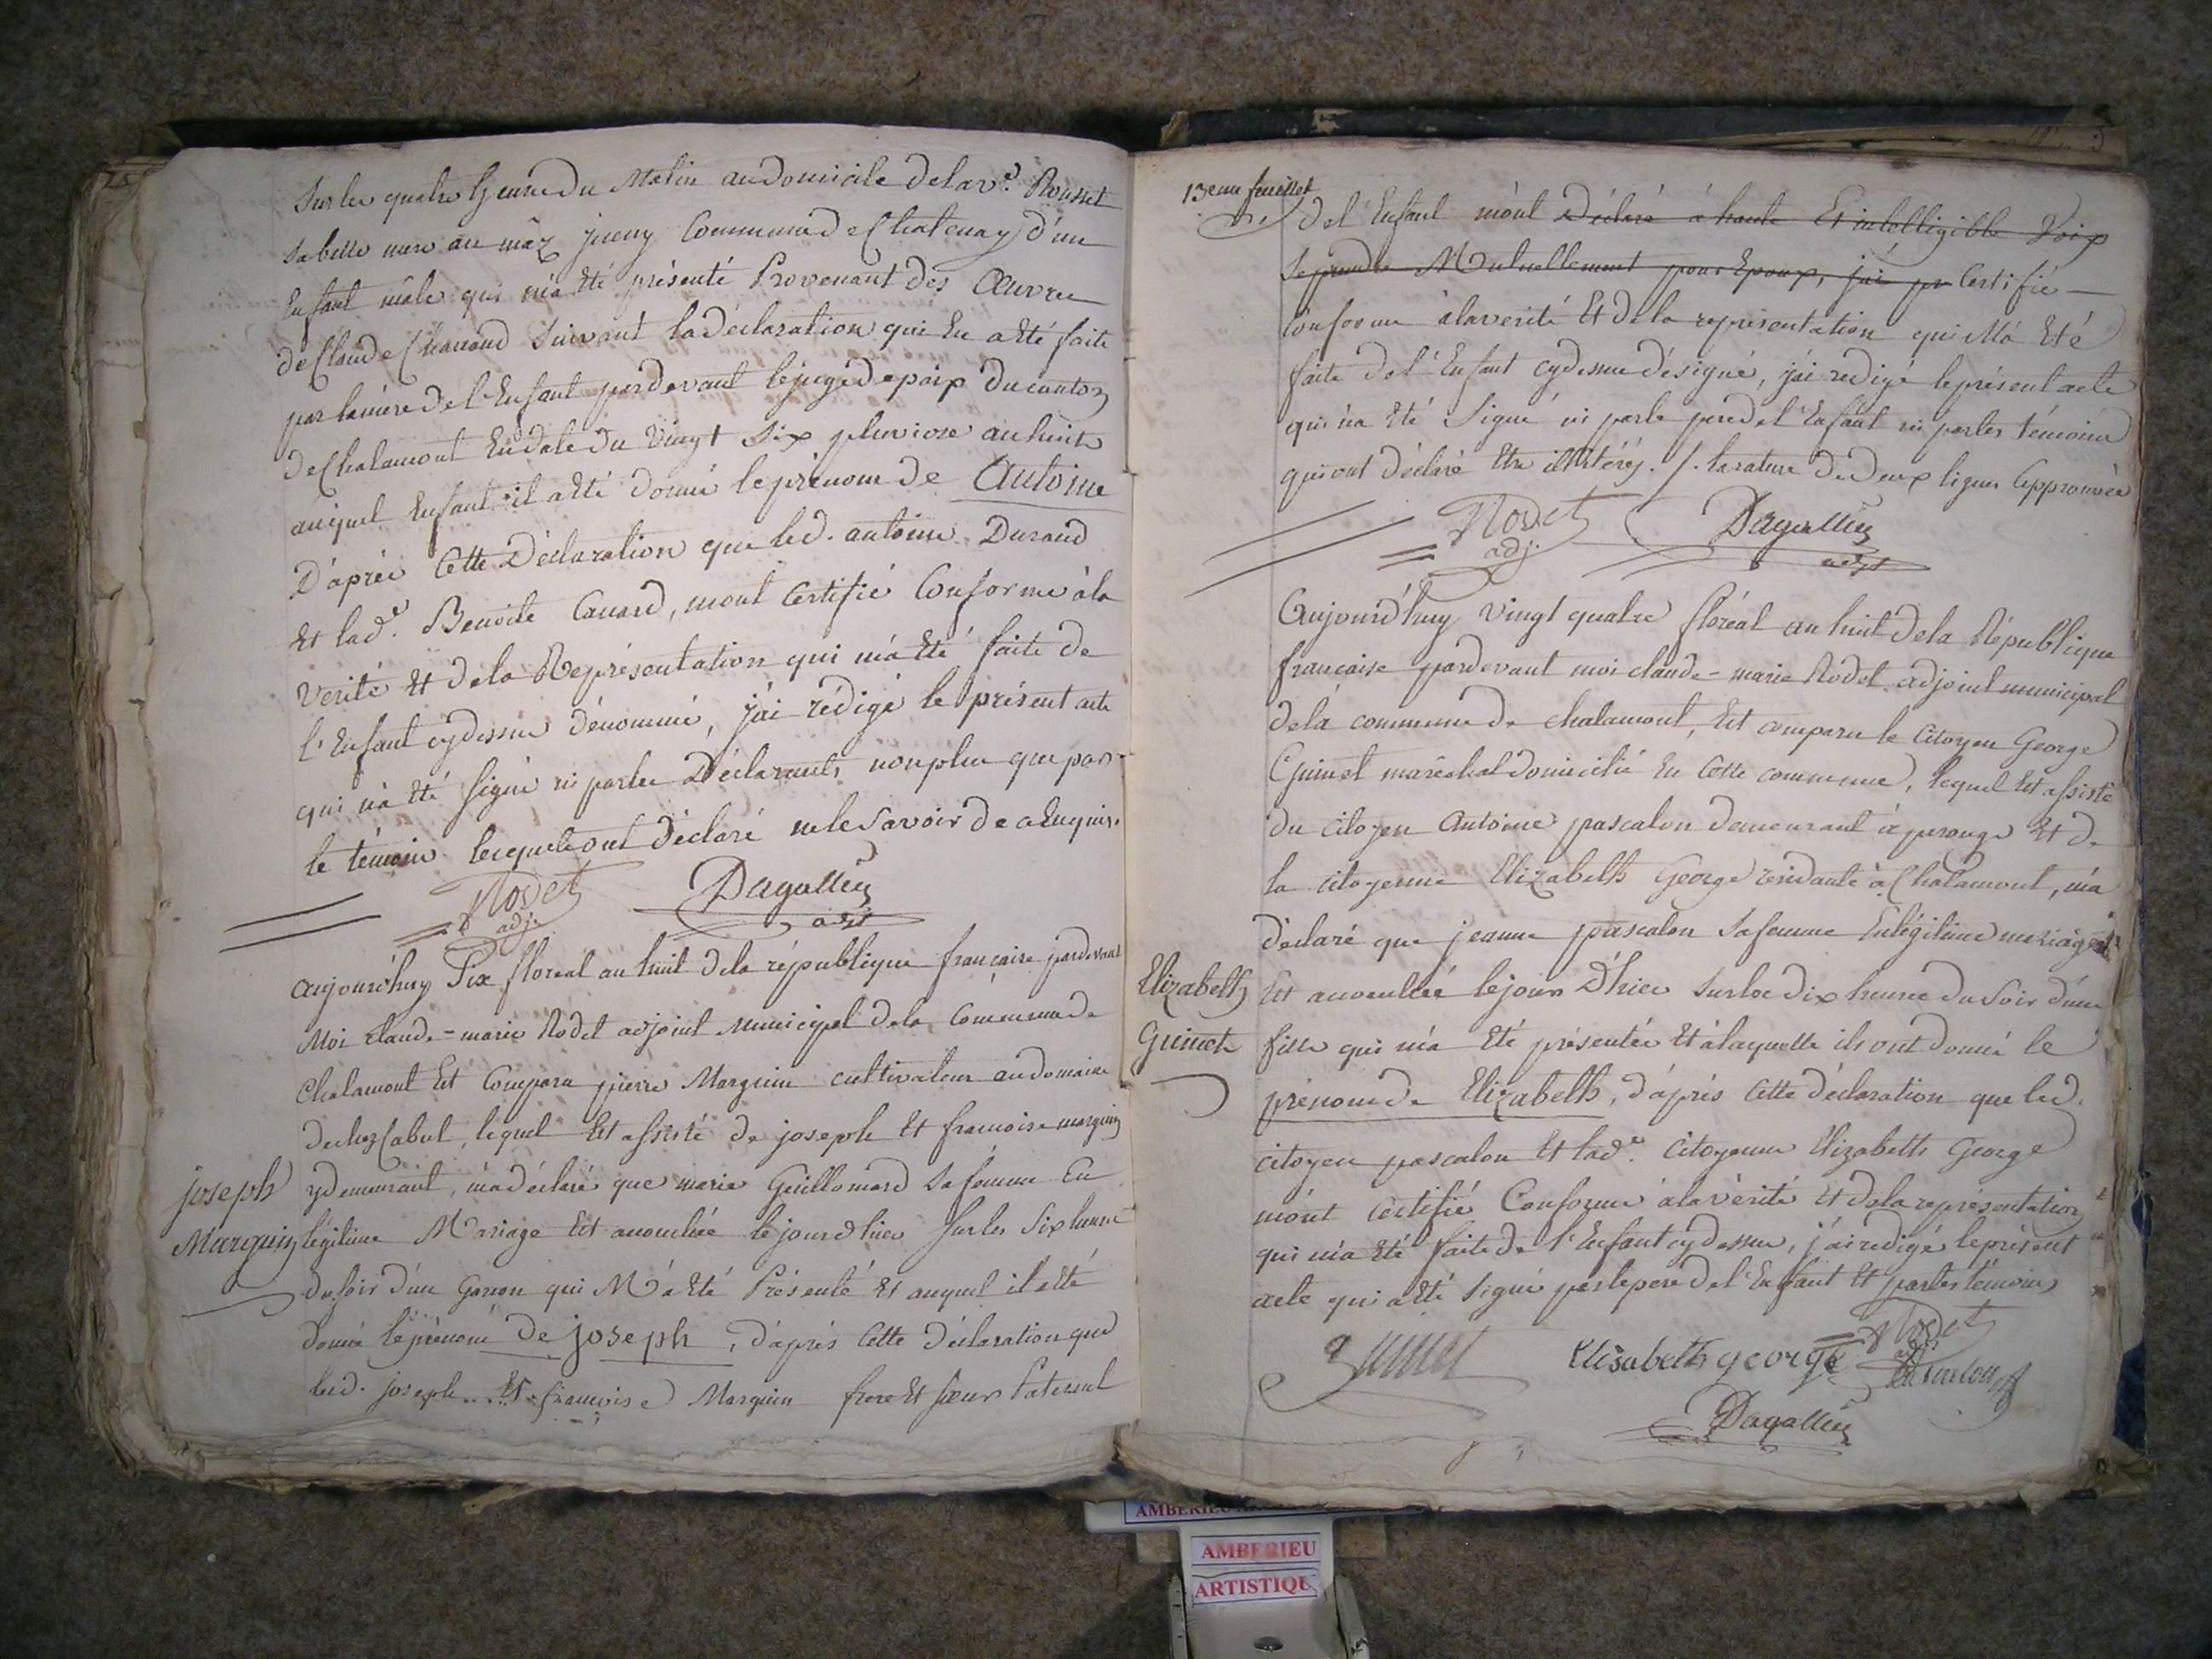 Sur les quatre heures du Matin au domicile de la ve. Rousset
sa belle mere au maz jueny Commune de Chatenay d'un
Enfant mâle qui m'a été présenté Provenant des Œuvres
de Claude Chanand Suivant la déclaration qui En a été faite
par la mère de l'Enfant pardevant le juge de paix du canton
de Chalamont En date du Vingt Six pluviose an huit
auquel Enfant il a été donné le prénom de Antoine
D'après Cette Déclaration que led. antoine Durand
Et lad.e Benoite Canard, m'ont Certifié Conforme à la
Verité Et de la Représentation qui m'a été faite de
l'Enfant cydessus dénommé, j'ai rédigé le présent acte
qui n'a été Signé ni par les Déclarants non plus que par
le témoin lesquels ont Déclaré ne le Savoir de ce Enquis.
Rodet adj. Dagallier
aujourd'huy Six floreal an huit de la république française pardevant
Moi Claude=marie Rodet adjoint Municipal de la Commune de
Chalamont Est Comparu pierre Marguin cultivateur au domaine
de chez Cabut, lequel Est assisté de joseph Et francoise marguin
joseph
Marguin
y demeurant, m'a déclaré que marie Guillomard sa femme En
légitime Mariage Est accouchée le jour d'hier sur les Six heures
du soir d'un Garçon qui M'a Eté Présenté Et auquel il a été
donné le prénom de joseph, d'après Cette Déclaration que
led. joseph Et francoise Marguin frere Et sœur Paternel
13eme feuillet
de l'Enfant m'ont Déclaré à haute Et intelligible Voix
Se prendre Mutuellement pour Epoux, j'ai pr Certifié
Conforme à la verité Et de la representation qui M'a Eté
faite de l'Enfant cydessus désigné, j'ai redigé le présent acte
qui n'a Eté Signé ni par le pere de l'Enfant ni par les témoins
qui ont déclaré Etre illitérés. /. la rature de deux lignes Approuvée
Rodet adj. Dagallier
Aujourd'huy vingt quatre floréal an huit de la République
française pardevant moi claude=marie Rodet adjoint municipal
de la commune de chalamont, Est comparu le Citoyen George
Guinet maréchal domicilié En Cette commune, lequel Est assisté
du Citoyen Antoine pascalon demeurant à perouge Et de
la citoyenne Elizabeth George residante à Chalamont, m'a
déclaré que jeanne pascalon Sa femme En légitime mariage
Elizabeth
Guinet
Est accouchée le jour D'hier sur les dix heures du Soir d'une
fille qui m'a Eté présentée Et à laquelle ils ont donné le
prénom de Elizabeth, d'après Cette déclaration que led.
citoyen pascalon Et lad.e Citoyenne Elizabeth George
m'ont certifié Conforme à la vérité Et de la representation
qui m'a Eté faite de l'Enfant cydessus, j'ai redigé le présent
acte qui a Eté Signé par le pere de l'Enfant Et par les témoins
Guinet Elisabeth george Rodet adj.
Dagallier
AMBERIEU
ARTISTIQU